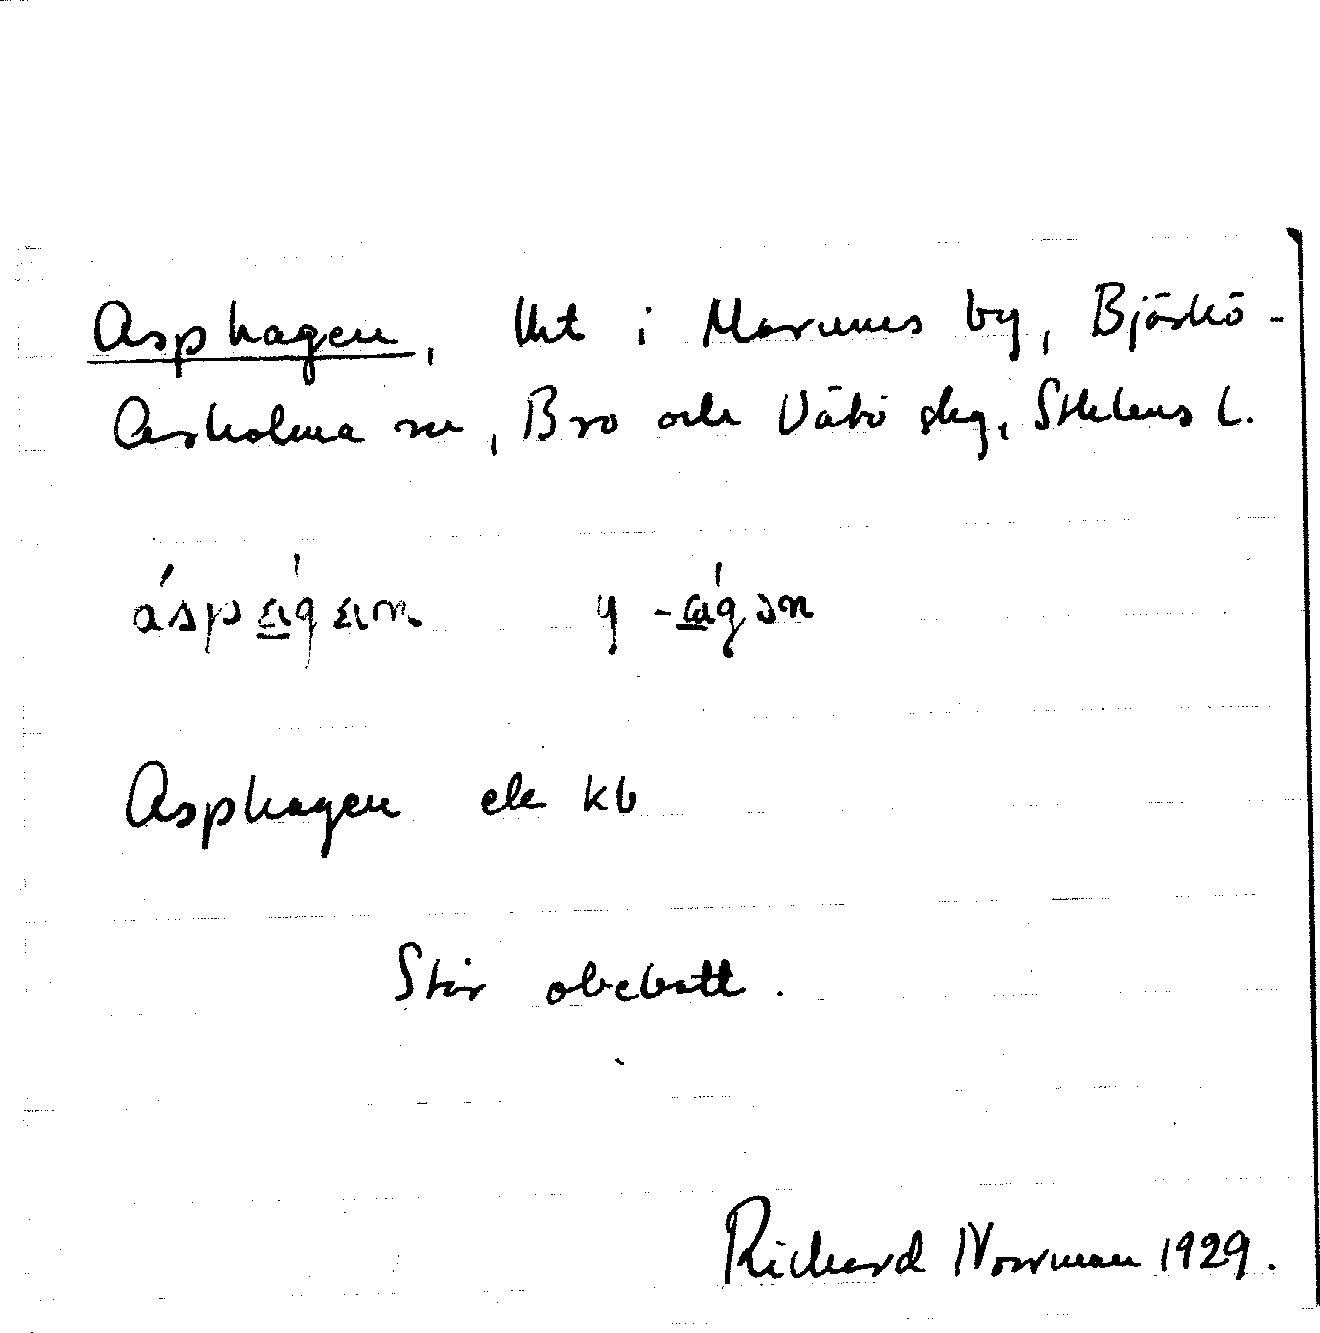 Asphagen, lht i Marums by, Björkö-
Arholma sn, Bro och Vätö skg, Sthlms l.
Asphagen ek kb
Står obebott.
Richard Norrman 1929.